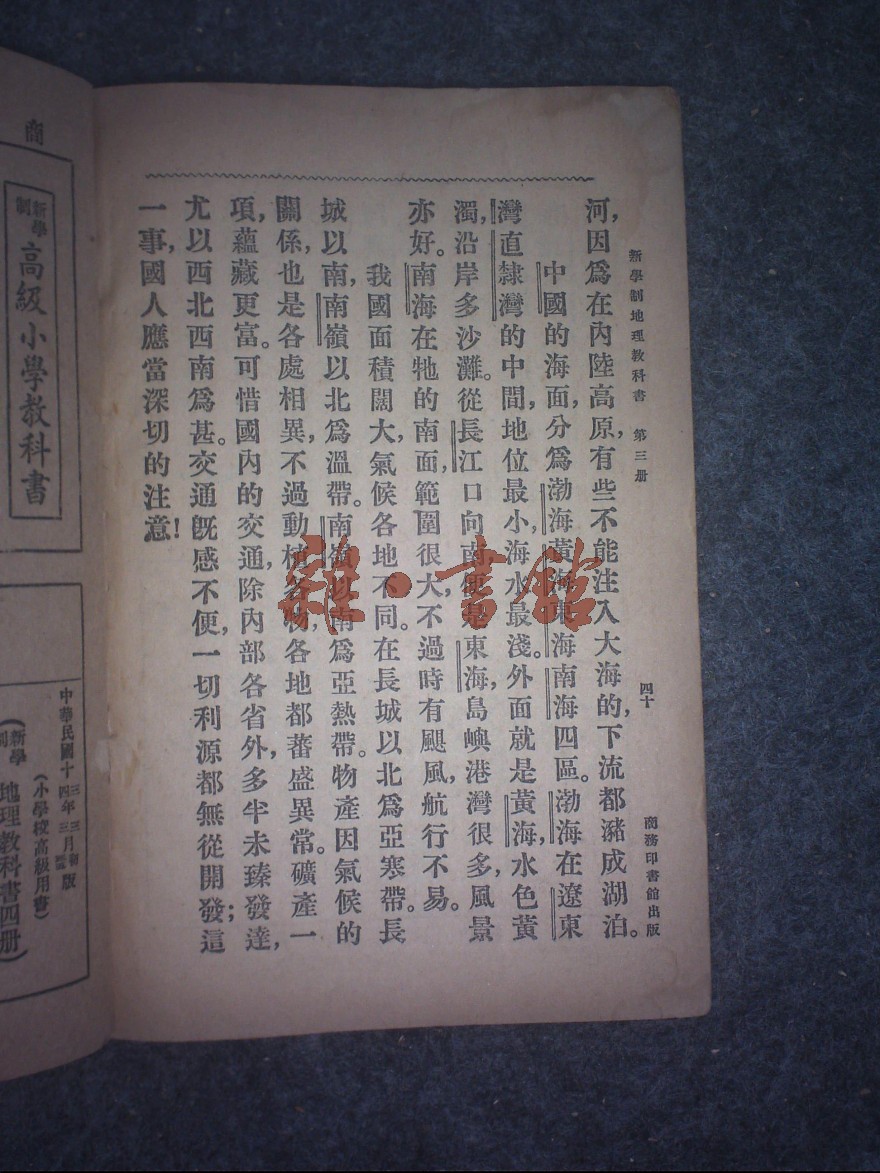 新學制地理教科書　第三册　四十　商務印書館出版
河，因爲在內陸高原，有些不能注入大海的，下流都瀦成湖泊。
中國的海面，分爲渤海黃海東海南海四區。渤海在遼東
灣直隸灣的中間，地位最小，海水最淺。外面就是黃海，水色黃
濁，沿岸多沙灘。從長江口向南，便是東海，島嶼港灣很多，風景
亦好。南海在牠的南面，範圍很大，不過時有颶風，航行不易。
我國面積闊大，氣候各地不同。在長城以北爲亞寒帶。長
城以南，南嶺以北爲溫帶。南嶺以南爲亞熱帶。物產因氣候的
關係，也是各處相異，不過動植各物，各地都蕃盛異常。礦產一
項，蘊藏更富。可惜國內的交通，除內部各省外，多半未臻發達，
尤以西北西南爲甚。交通旣感不便，一切利源都無從開發；這
一事，國人應當深切的注意！
雜·書館
商
新學制
高級小學教科書
中華民國十三年三月初版
四　三
(小學校高級用書)
(新學制　地理教科書四册)